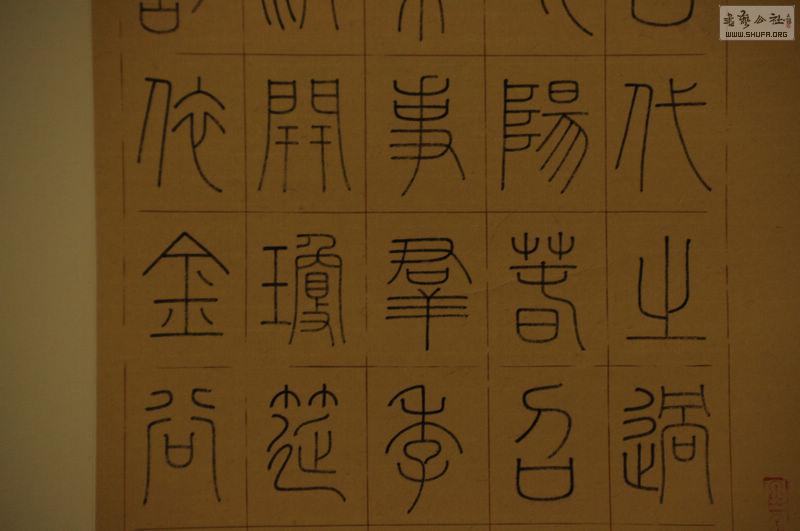 代之過
陽春召
事羣季
開瓊筵
依金谷
書藝公社
WWW.SHUFA.ORG